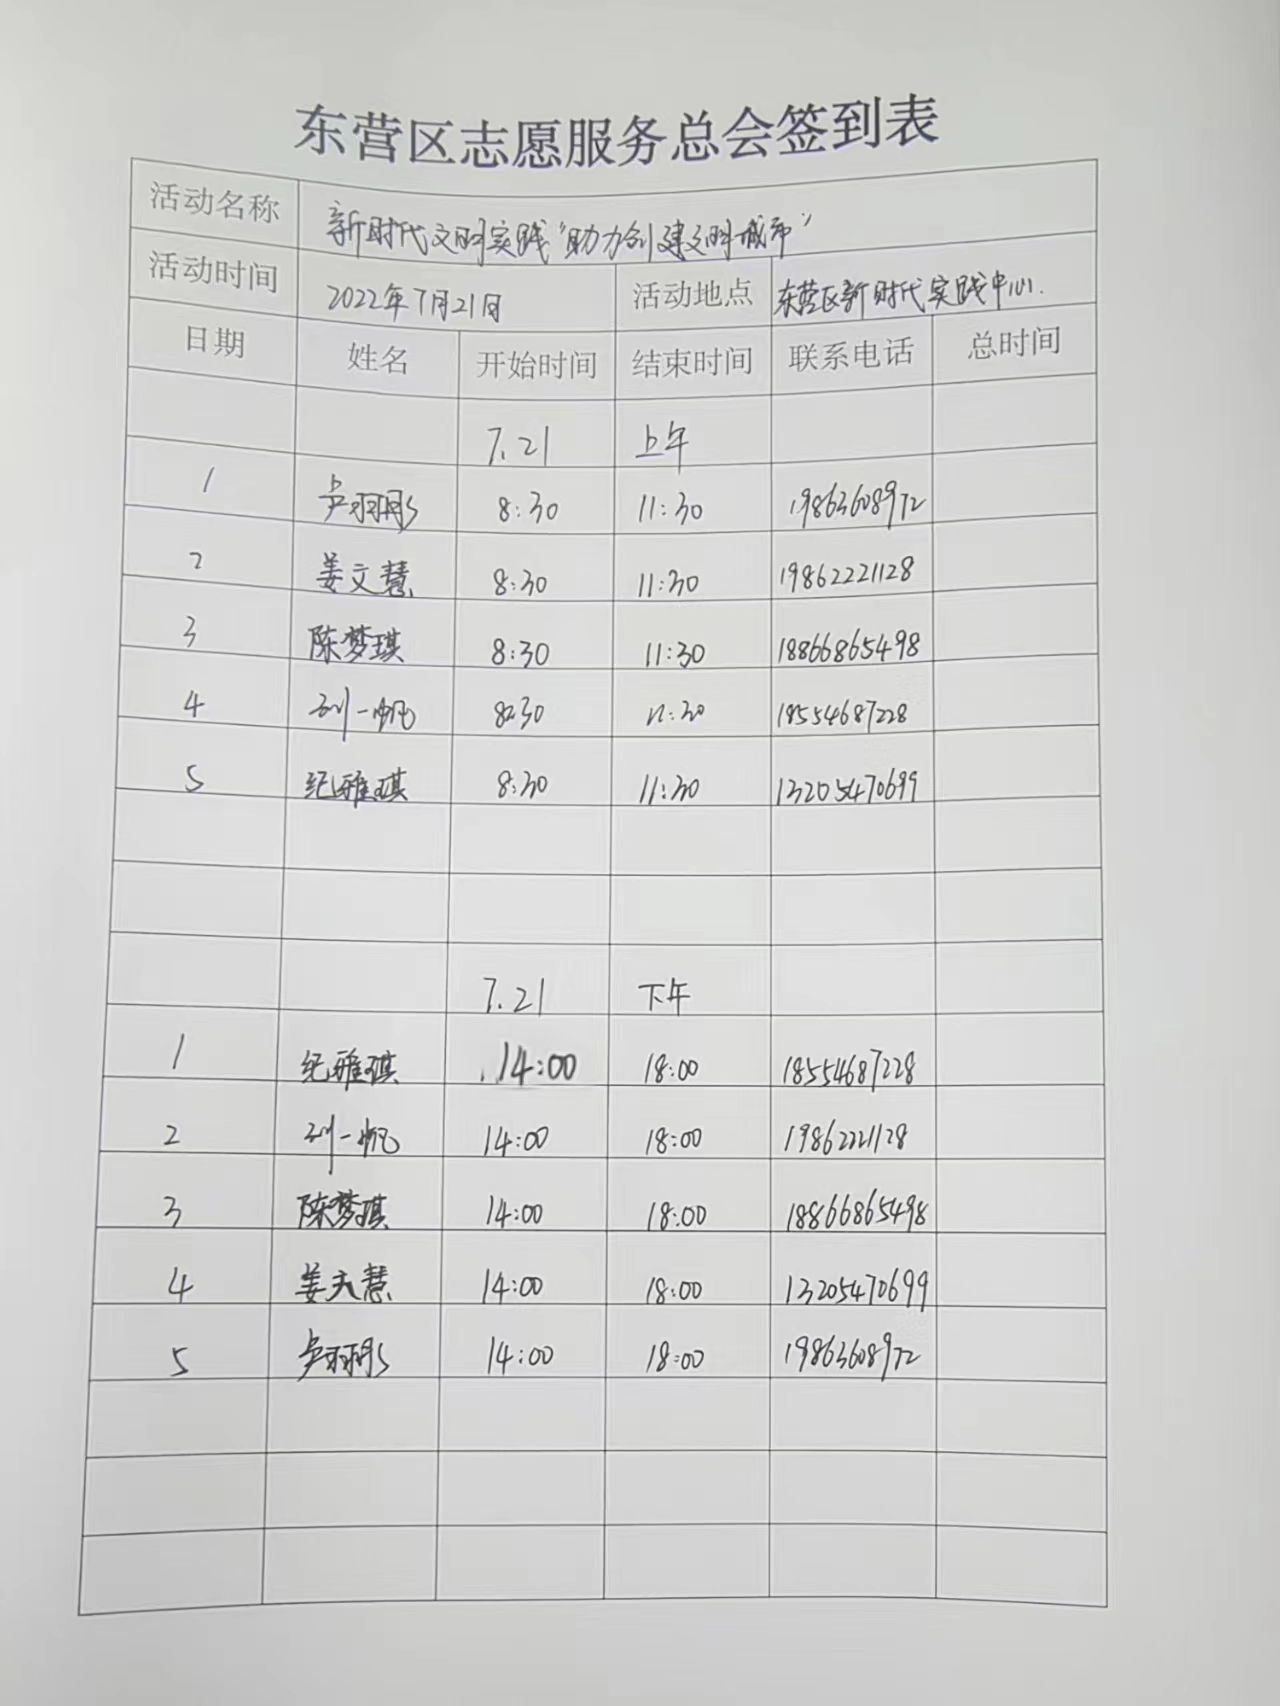 东营区志愿服务总会签到表
活动名称 新时代文明实践“助力创建文明城市”
活动时间 2022年7月21日 活动地点 东营区新时代实践中心.
日期 姓名 开始时间 结束时间 联系电话 总时间
7.21 上午
1 卢羽彤 8:30 11:30 19863608972
2 姜文慧 8:30 11:30 19862221128
3 陈梦琪 8:30 11:30 18866865498
4 刘一帆 8:30 11:30 18554687228
5 纪雅琪 8:30 11:30 13205470699
7.21 下午
1 纪雅琪 14:00 18:00 18554687228
2 刘一帆 14:00 18:00 19862221128
3 陈梦琪 14:00 18:00 18866865498
4 姜文慧 14:00 18:00 13205470699
5 卢羽彤 14:00 18:00 19863608972